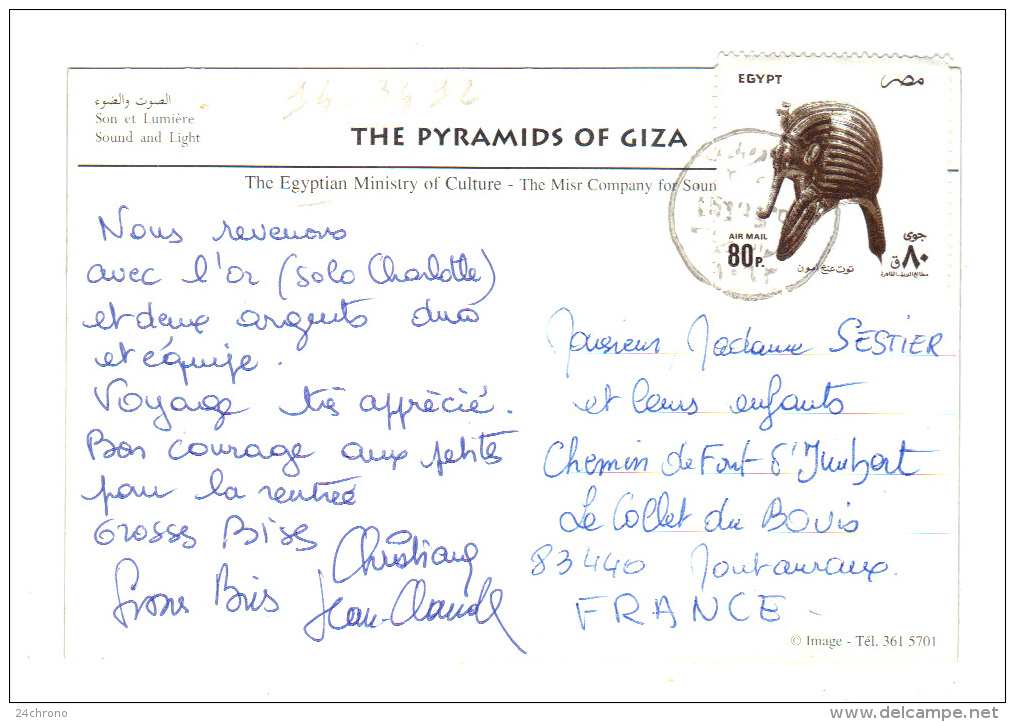 الصوت والضوء
Son et Lumière
Sound and Light
14.3412
THE PYRAMIDS OF GIZA
The Egyptian Ministry of Culture - The Misr Company for Soun
EGYPT
مصر
AIR MAIL
80 P.
جوى
٨٠ ق
توت عنخ آمون
Nous revenons
avec l'or (solo Charlotte)
et deux argents duo
et équipe.
Voyage très apprécié.
Bon courage aux petites
pour la rentrée
Grosses Bises
Christiane
Jean-Claude
Monsieur Madame SESTIER
et leurs enfants
Chemin de Font d'Imbert
Le Collet du BOUIS
83440 Montauroux.
FRANCE -
© Image - Tél. 361 5701
24chrono
www.delcampe.net